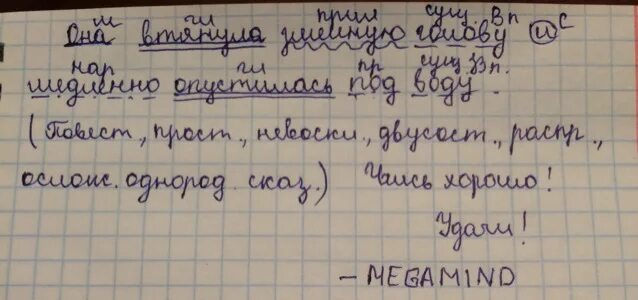 м гл прил сущ Вп с
Она втянула уменую голову и
нар гл пр сущ Вп.
медленно опустилась под воду.
(Повест., прост., невоскл., двусост., распр.,
ослож. однород. сказ.) Учись хорошо!
Удачи!
- MEGAMIND